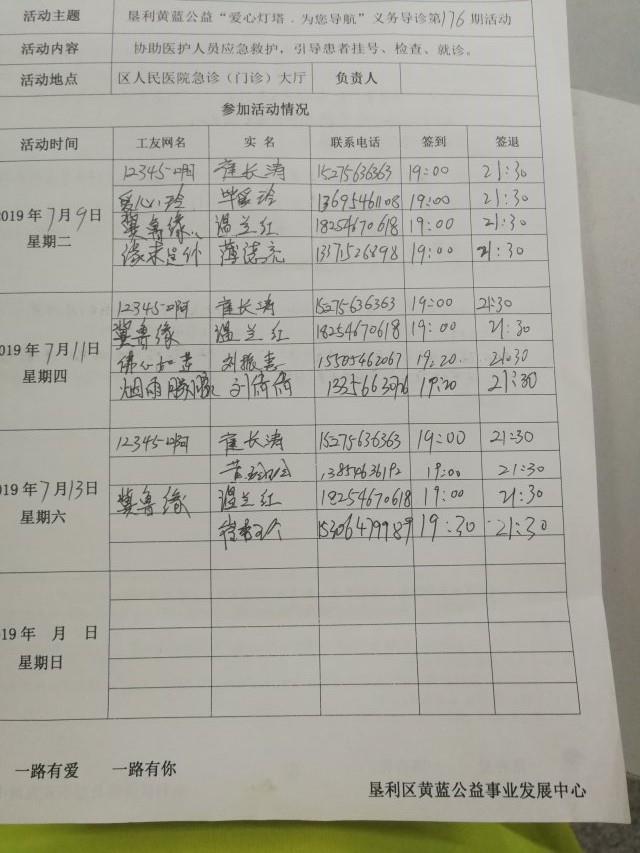 活动主题 垦利黄蓝公益“爱心灯塔．为您导航”义务导诊第176期活动
活动内容 协助医护人员应急救护，引导患者挂号、检查、就诊。
活动地点 区人民医院急诊（门诊）大厅 负责人
参加活动情况
活动时间 工友网名 实 名 联系电话 签到 签退
12345-啊 崔长涛 15275636363 19:00 21:30
爱心玲 玲 13695461108 19:00 21:30
2019年7月9日
冀鲁缘 温兰红 18254670618 19:00 21:30
星期二
缘来是你 薄德亮 13371526898 19:00 21:30
12345-啊 崔长涛 15275636363 19:00 21:30
冀鲁缘 温兰红 18254670618 19:00 21:30
019年7月11日
刘振 15505462067 19:20 21:30
星期四
烟雨朦胧 刘倩倩 19:20 21:30
12345-啊 崔长涛 15275636363 19:00 21:30
19:00 21:30
019年7月13日
冀鲁缘 温兰红 18254670618 19:00 21:30
星期六
19:30 21:30
19年 月 日
星期日
一路有爱 一路有你
垦利区黄蓝公益事业发展中心